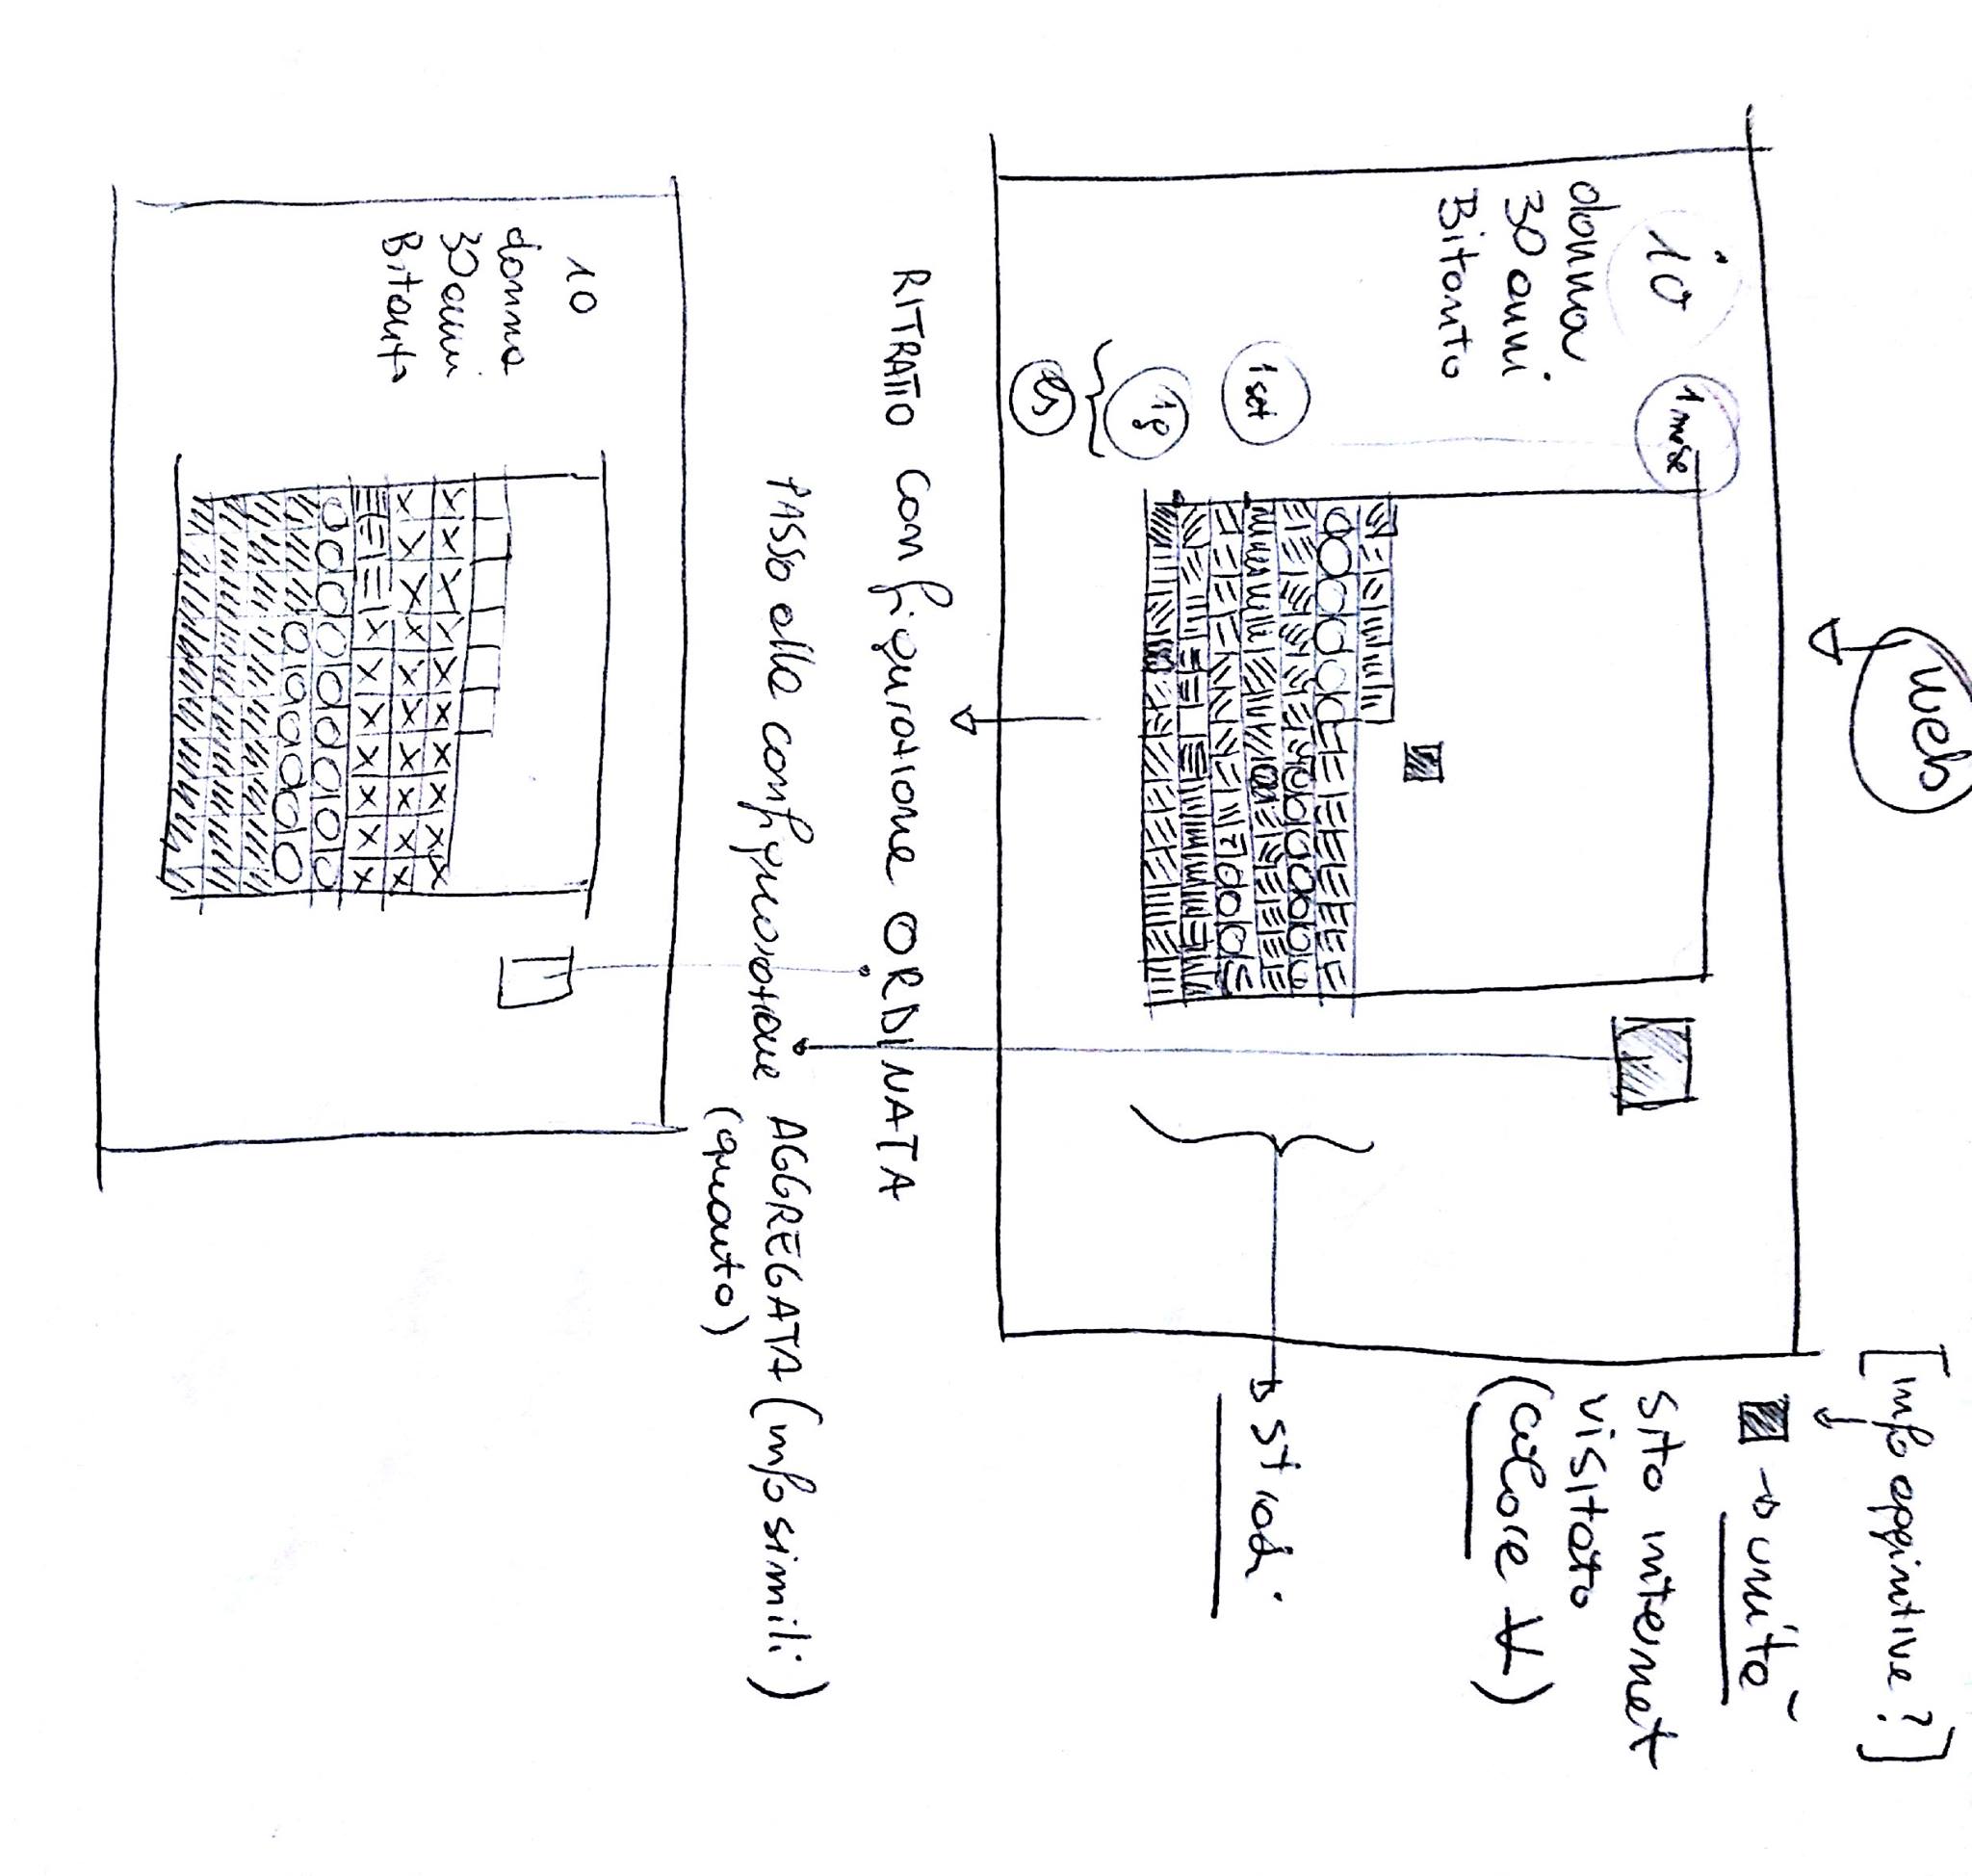 web
[info aggiuntive?]
→ unità
sito internet
visitato
(colore V)
io
donna
30 anni
Bitonto
1 mese
1 set
1g
es
strati
RITRATTO configurazione ORDINATA
PASSO alla configurazione AGGREGATA (info simili)
(quanto)
io
donna
30 anni
Bitonto